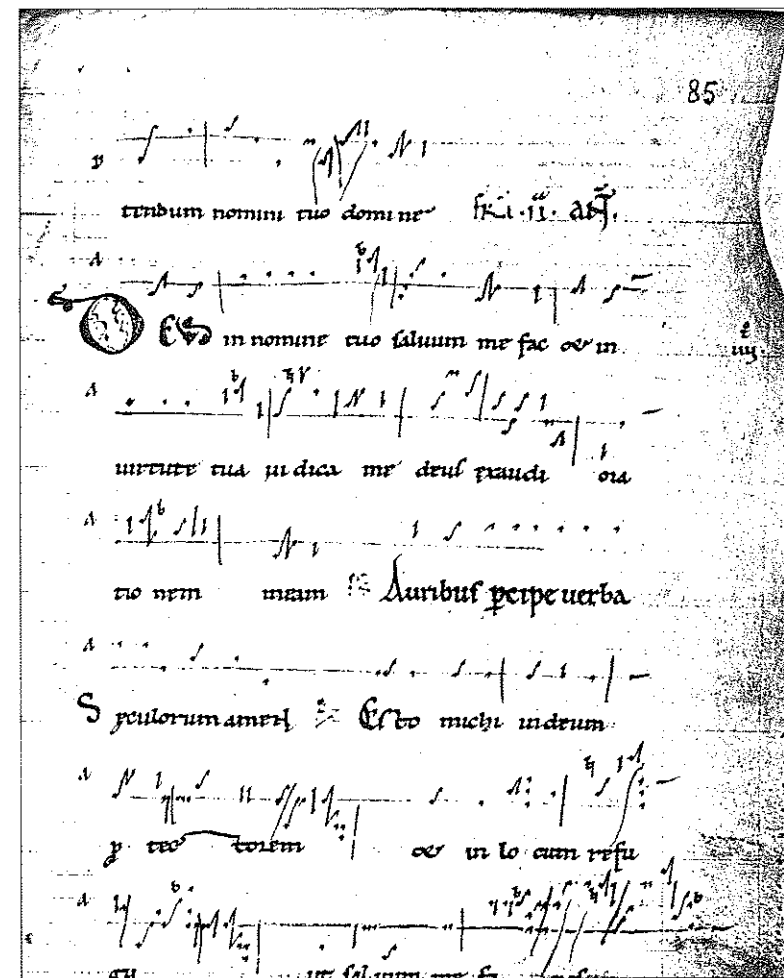 85
tendum nomini tuo domine
DEUS in nomine tuo saluum me fac et in
uirtute tua iudica me deus exaudi ora
tio nem meam Auribus percipe uerba
Seculorum amen Esto michi in deum
p tec torem et in lo cum refu
gii ut saluum me fa